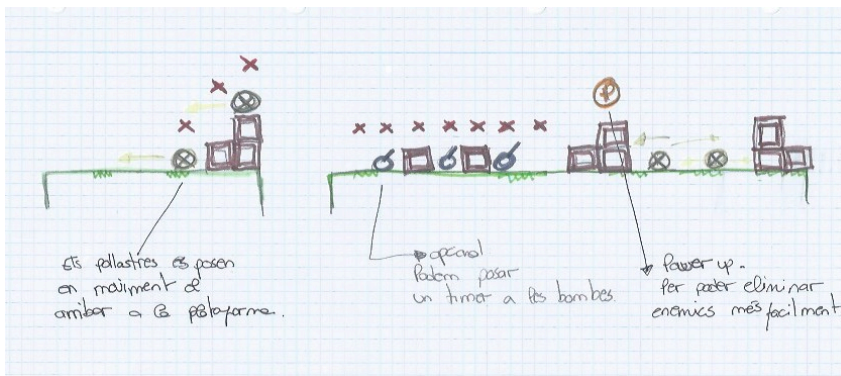 Els pollastres es posen
en moviment al
arribar a la plataforma.
opcional
Podem posar
un timer a les bombes.
P
Power up.
Per poder eliminar
enemics més facilment